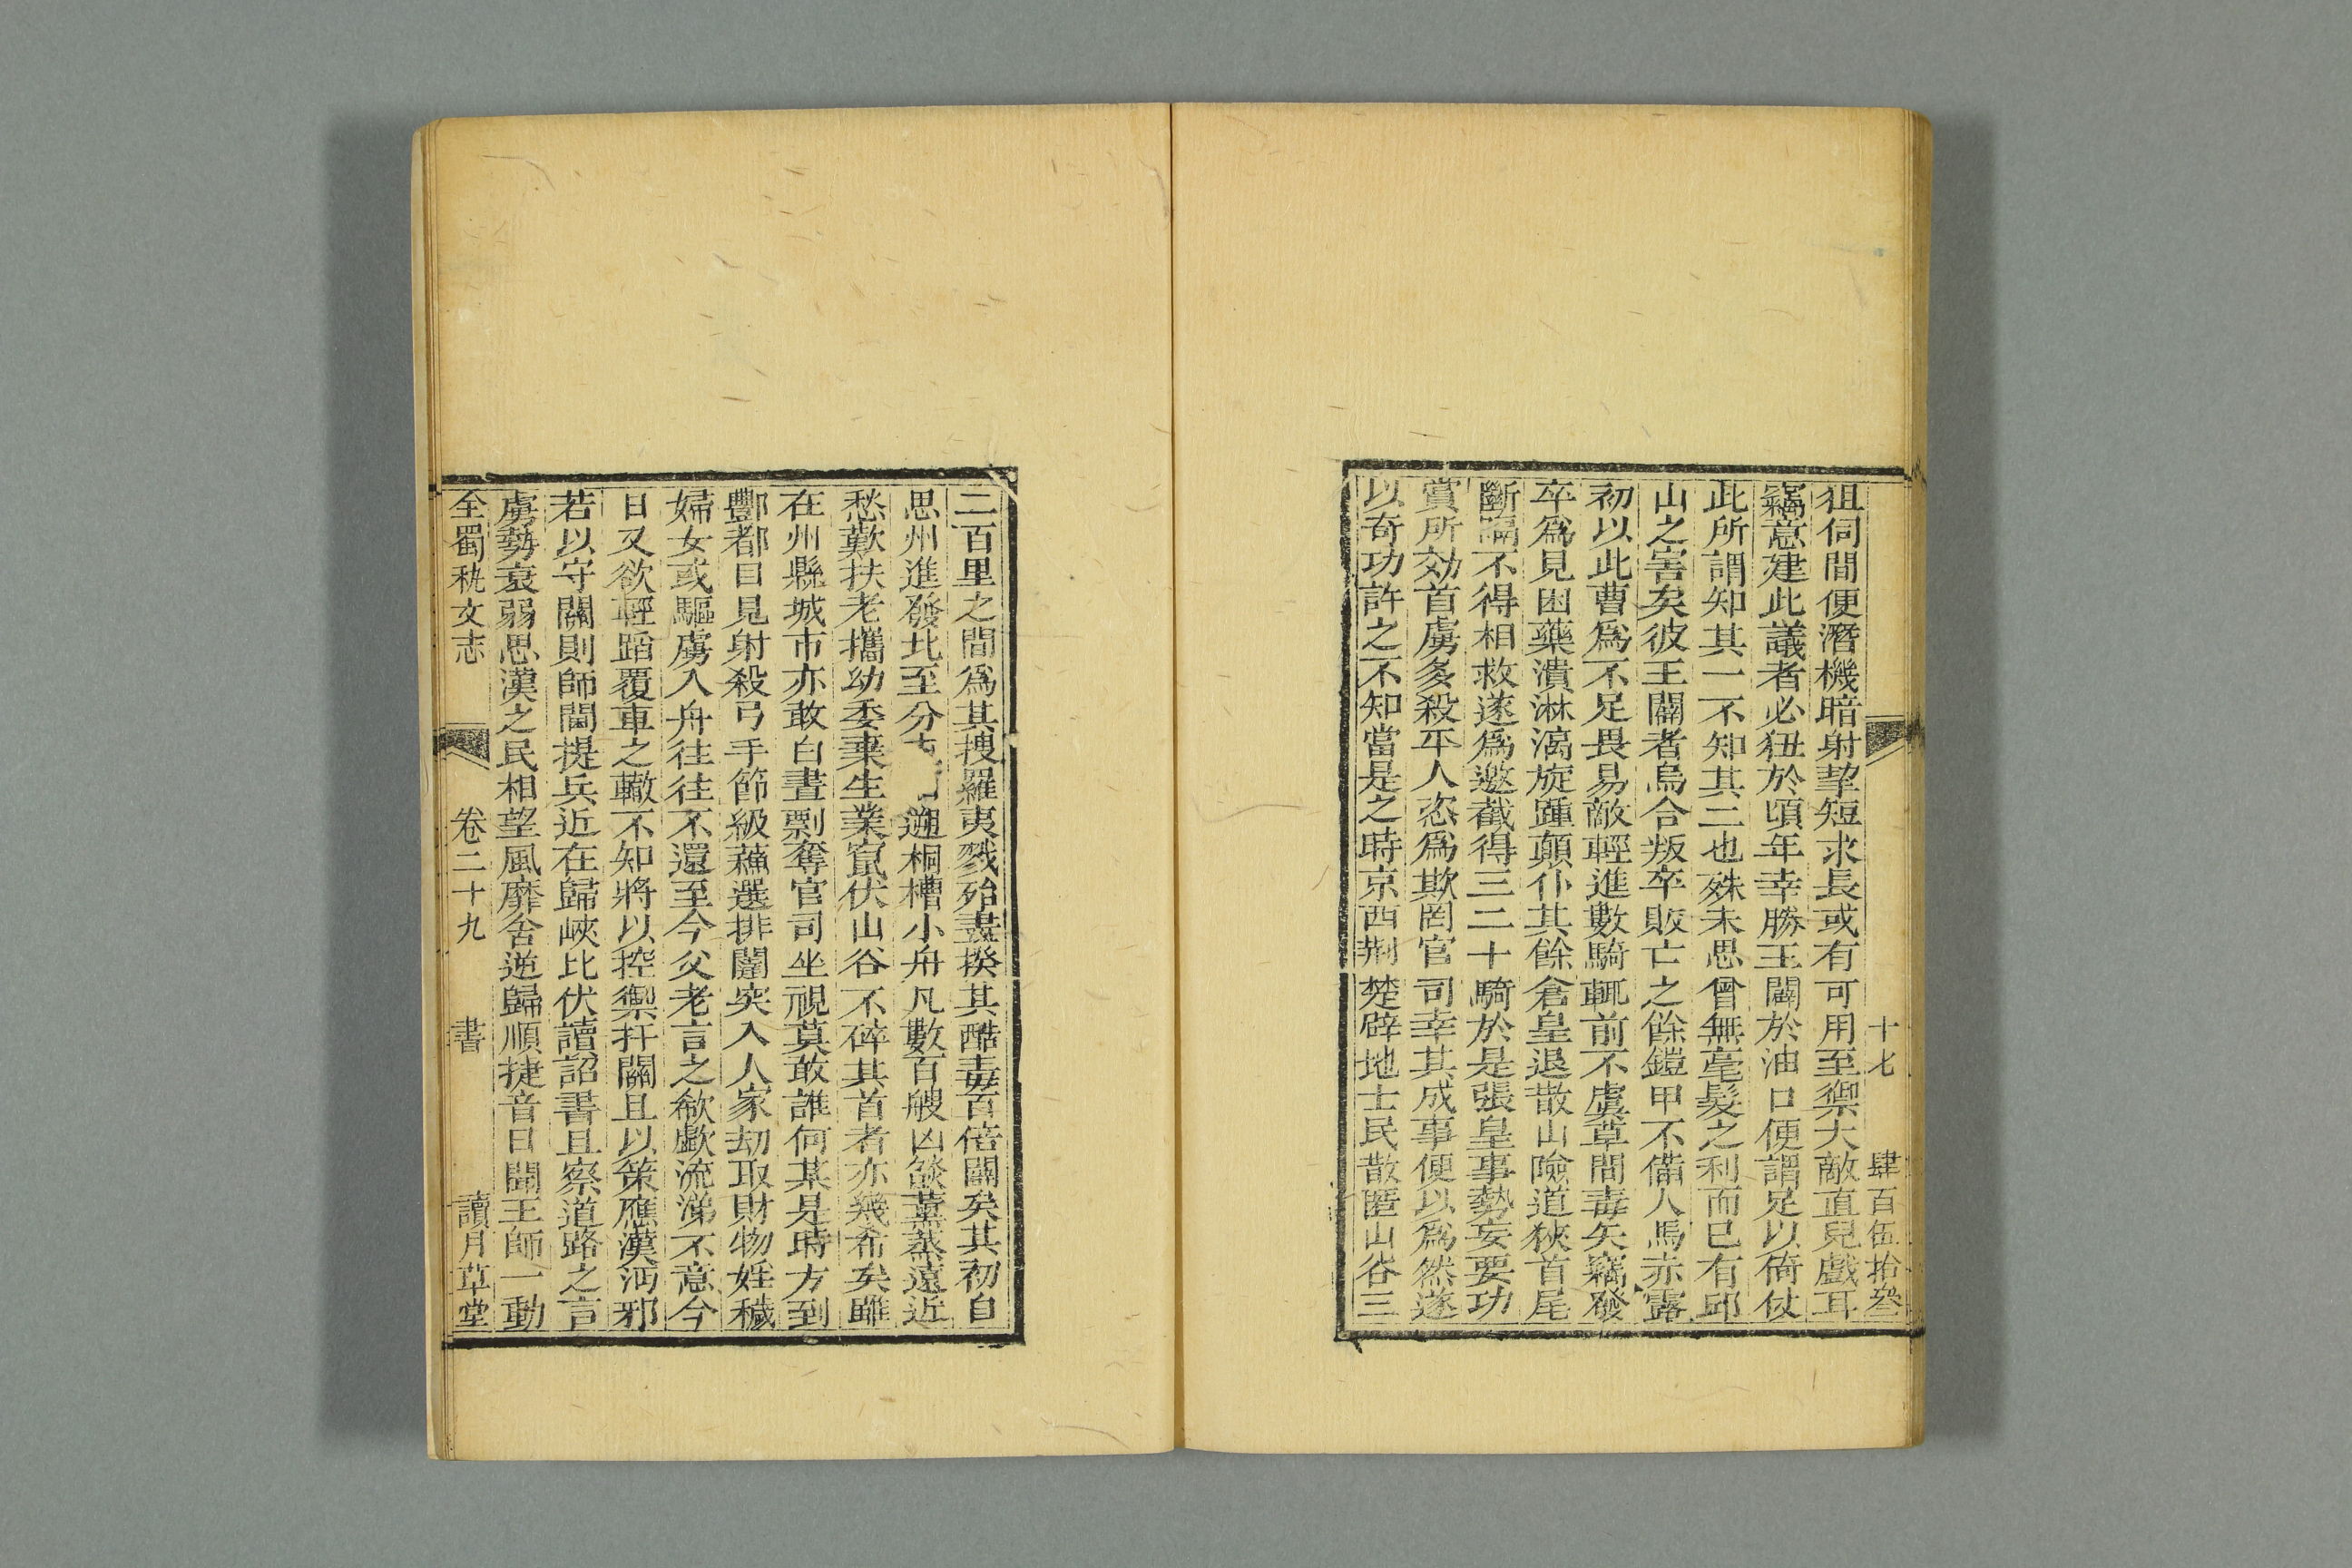 十七 肆百伍拾叄
狙伺間便潛機暗射挈短求長或有可用至禦大敵直兒戲耳
竊意建此議者必狃於頃年幸勝王闢於油口便謂足以倚仗
此所謂知其一不知其二也殊未思曾無毫髮之利而已有邱
山之害矣彼王闢者烏合叛卒敗亡之餘鎧甲不備人馬赤露
初以此曹爲不足畏易敵輕進數騎輒前不虞草間毒矢竊發
卒爲見困藥潰淋漓旋踵顛仆其餘倉皇退散山險道狹首尾
斷隔不得相救遂爲邀截得三二十騎於是張皇事勢妄要功
賞所効首虜多殺平人恣爲欺罔官司幸其成事便以爲然遂
以奇功許之不知當是之時京西荆楚辟地士民散匿山谷三
二百里之間爲其搜羅夷戮殆盡揆其酷毒百倍闢矣其初自
思州進發比至分 遡桐槽小舟凡數百艘凶燄薰蒸遠近
愁歎扶老攜幼委棄生業竄伏山谷不碎其首者亦幾希矣雖
在州縣城市亦敢白晝剽奪官司坐視莫敢誰何某是時方到
酆都目見射殺弓手節級蘓選排闥突入人家刧取財物姪穢
婦女或驅虜入舟往往不還至今父老言之欷歔流涕不意今
日又欲輕蹈覆車之轍不知將以控禦扞關且以策應漢沔邪
若以守關則師閫提兵近在歸峽比伏讀詔書且察道路之言
虜勢衰弱思漢之民相望風靡舍逆歸順捷音日聞王師一動
全蜀秇文志 卷二十九 書 讀月草堂